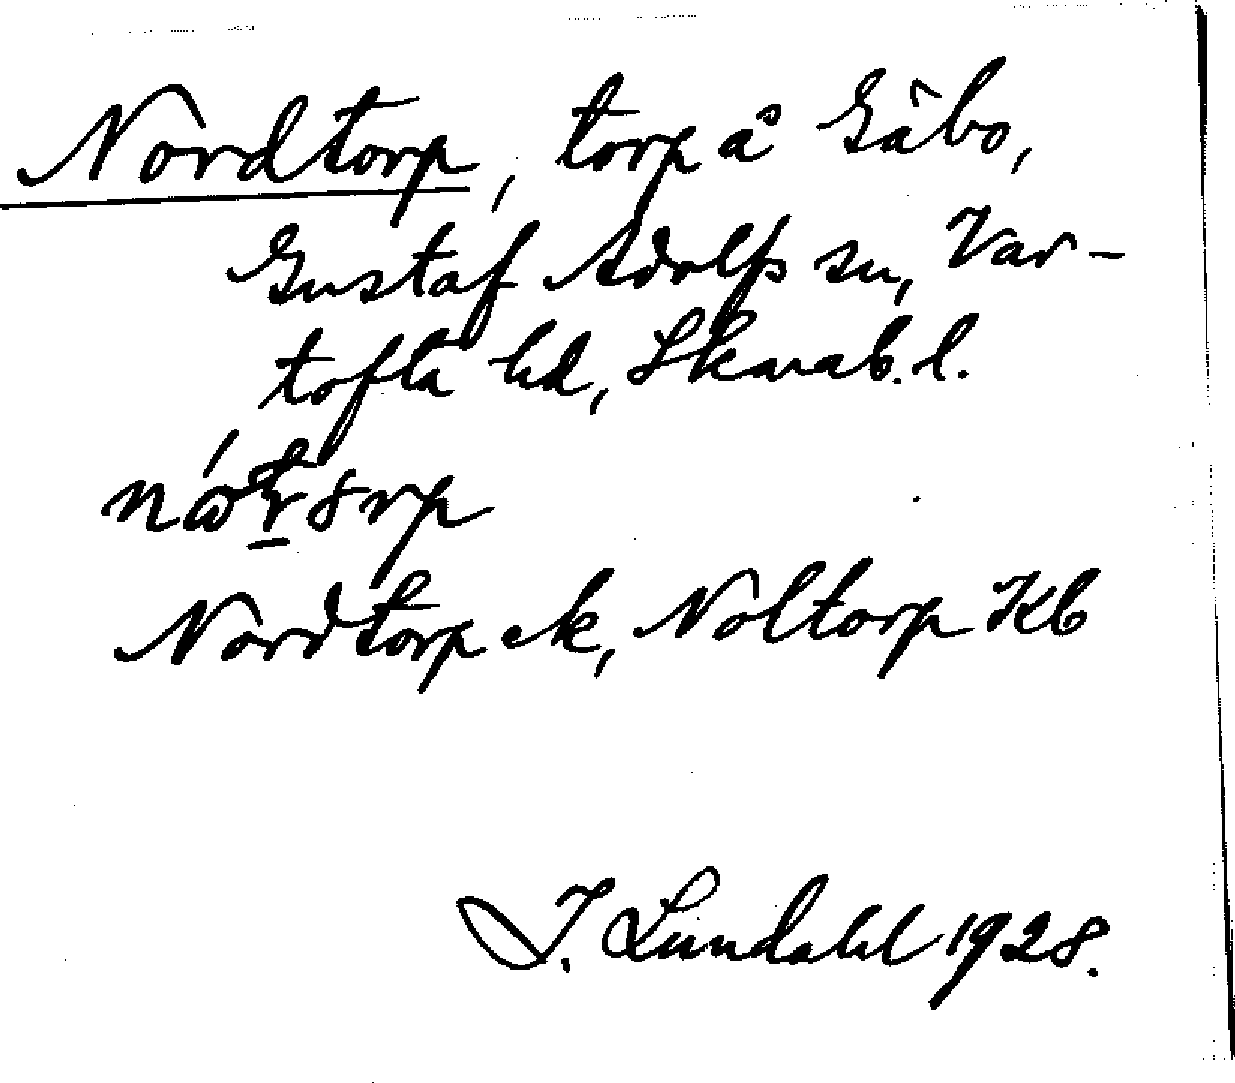 Nordtorp, torp å Gåbo,
Gustaf Adolfs sn, Var-
tofta hd, Skarab. l.
Nordtorp ek, Noltorp Kb
I. Lundahl 1928.